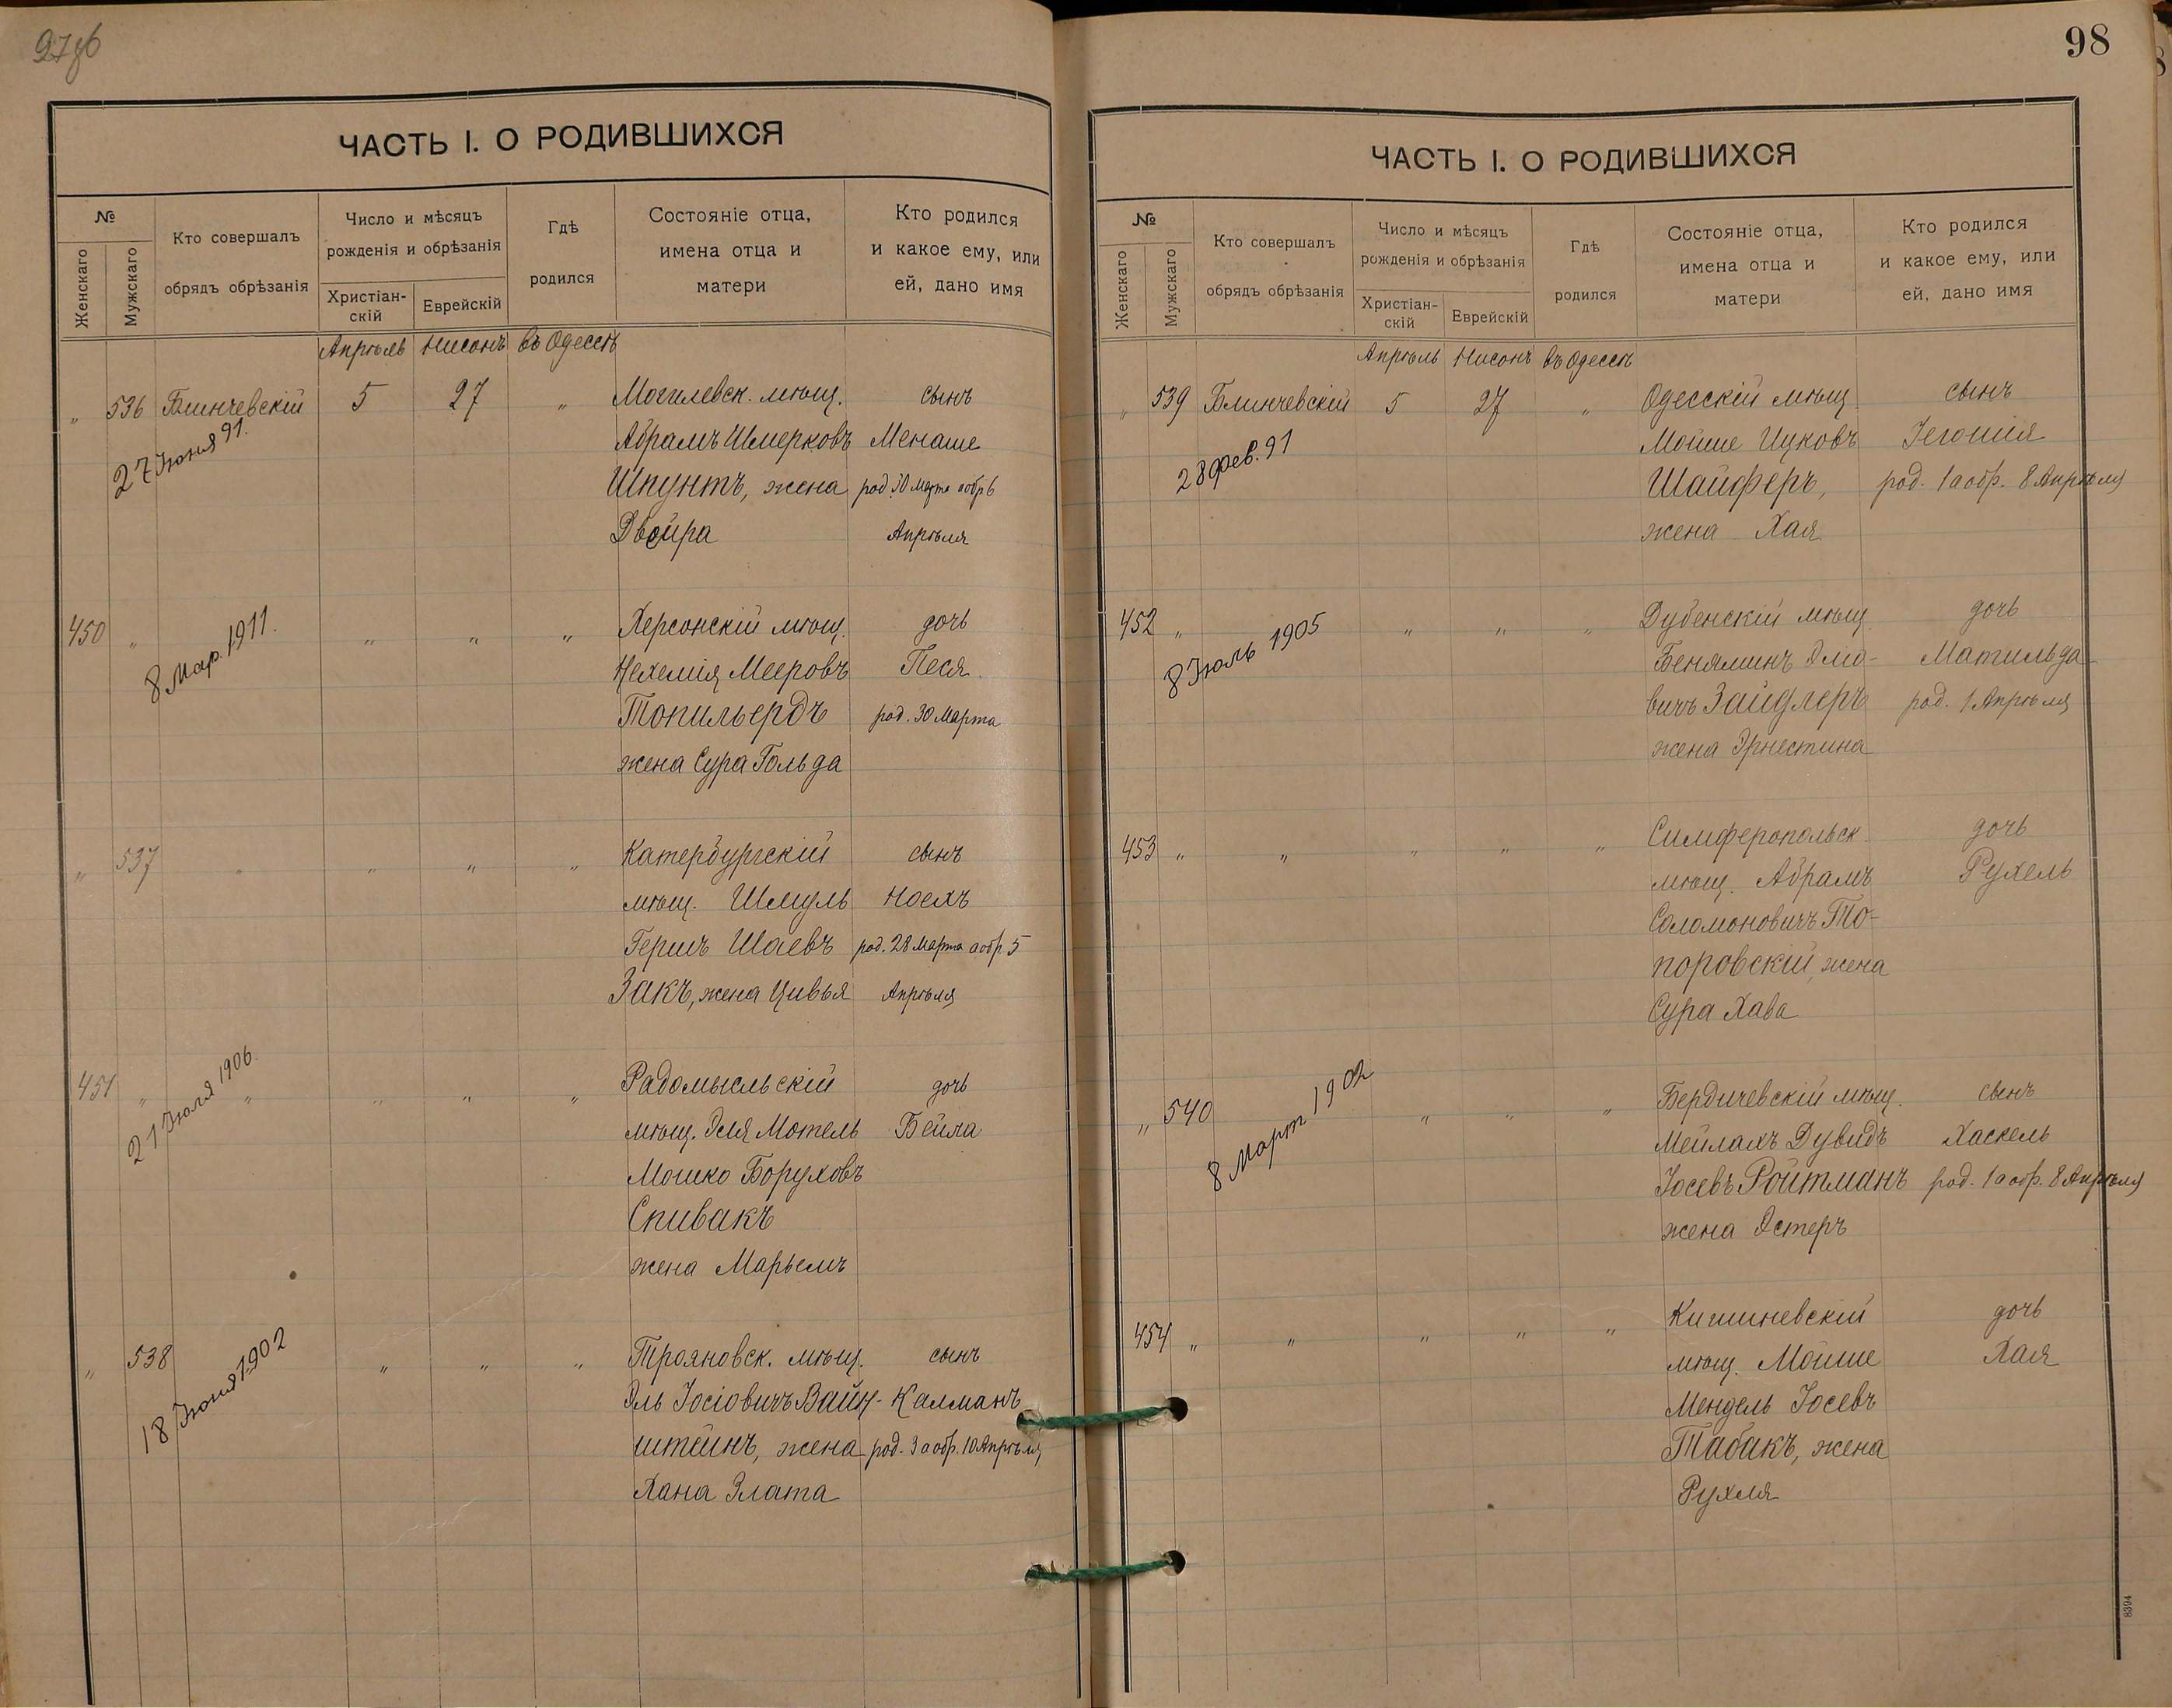 97об
ЧАСТЬ I. О РОДИВШИХСЯ
№
Женскаго
Мужскаго
Кто совершалъ
обрядъ обрѣзанія
Число и мѣсяцъ
рожденія и обрѣзанія
Христіан-
скій
Еврейскій
Гдѣ
родился
Состояніе отца,
имена отца и
матери
Кто родился
и какое ему, или
ей, дано имя
Апрѣль Нисонъ въ Одессѣ
" 536 Блинчевскій 5 27 " Могилевск. мѣщ. сынъ
27 Іюня 91.
Абрамъ Шмерковъ Менаше
Шпунтъ, жена род. 30 Марта а обр 6
Двойра Апрѣля
450 " " " " Херсонскій мѣщ. дочь
8 Мар. 1911.
Нехемія Мееровъ Песя
Топильердъ род. 30 Марта
жена Сура Гольда
" 537 " " " " Катербургскій сынъ
мѣщ. Шмуль Ноехъ
Гершъ Шаевъ род. 28 Марта а обр 5
Закъ, жена Цивья Апрѣля
451 " " " " " Радомысльскій дочь
21 Іюля 1906.
мѣщ. Эля Мотель Бейла
Мошко Боруховъ
Спивакъ
жена Марьемъ
" 538 " " " Трояновск. мѣщ. сынъ
18 Іюня 1902
Эль Іосіовичъ Вайн- Калманъ
штейнъ, жена род. 3 а обр. 10 Апрѣля
Хана Злата
98
ЧАСТЬ I. О РОДИВШИХСЯ
№
Женскаго
Мужскаго
Кто совершалъ
обрядъ обрѣзанія
Число и мѣсяцъ
рожденія и обрѣзанія
Христіан-
скій
Еврейскій
Гдѣ
родился
Состояніе отца,
имена отца и
матери
Кто родился
и какое ему, или
ей, дано имя
Апрѣль Нисонъ въ Одессѣ
" 539 Блинчевскій 5 27 " Одесскій мѣщ. сынъ
28 фев. 91
Мойше Ицковъ Іегошія
Шайферъ, род. 1 а обр. 8 Апрѣля
жена Хая
452 " " " " Дубенскій мѣщ. дочь
8 Іюль 1905
Беняминъ Эліо- Матильда
вичъ Зайдлеръ род. 1 Апрѣля
жена Эрнестина
453 " " " " " Симферопольск. дочь
мѣщ. Абрамъ Рухель
Соломоновичъ То-
поровскій, жена
Сура Хава
" 540 " " " Бердичевскій мѣщ. сынъ
8 Март 1902
Мейлахъ Дувидъ Хаскель
Іосевъ Ройтманъ род. 1 а обр. 8 Апрѣля
жена Эстеръ
454 " " " " " Кишиневскій дочь
мѣщ. Мойше Хая
Мендель Іосевъ
Табакъ, жена
Рухля
8394